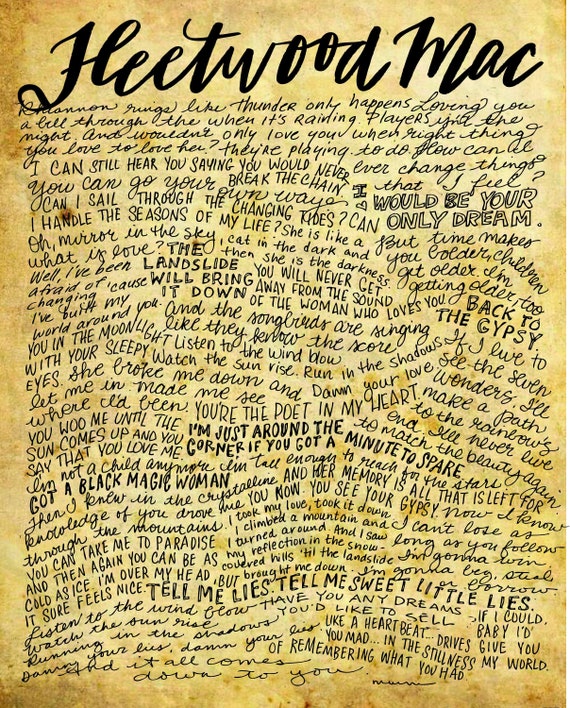 Fleetwood Mac
Rhiannon rings like Thunder only happens Loving you
a bell through the when it's raining. Players ynd the
night. And wouldn't only love you when right thing
you love to love her? they're playing. to do. How can I
I CAN STILL HEAR YOU SAYING YOU WOULD NEVER ever change things
You can go your own way BREAK THE CHAIN that I feel?
CAN I SAIL THROUGH THE CHANGING TIDES? CAN I'D WOULD BE YOUR
I HANDLE THE SEASONS OF MY LIFE? She is like a ONLY DREAM.
Oh, mirror in the sky cat in the dark and But time makes
what is love? THE then she is the darkness. you bolder, children
Well, I've been LANDSLIDE YOU WILL NEVER GET get older. I'm
afraid of 'cause WILL BRING AWAY FROM THE SOUND getting older, too
changing IT DOWN OF THE WOMAN WHO LOVES YOU. BACK TO
I've built my And the songbirds are singing THE GYPSY
world around you. like they know the score If I live to
YOU IN THE MOONLIGHT Listen to the wind blow see the seven
WITH YOUR SLEEPY Watch the sun rise. Run in the shadows Wonders, I'll
EYES. She broke me down and Damn your love make a path
let me in made me see to the rainbow's
where I'd been. YOU'RE THE POET IN MY HEART. end. I'll never live
YOU WOO ME UNTIL THE I'M JUST AROUND THE to match the beauty again.
SUN COMES UP AND YOU CORNER IF YOU GOT A MINUTE TO SPARE
SAY THAT YOU LOVE ME
I'm not a child anymore I'm tall enough to reach for the stars
GOT A BLACK MAGIC WOMAN AND HER MEMORY IS ALL THAT IS LEFT FOR
Then I knew in the crystalline YOU NOW. YOU SEE YOUR GYPSY Now I know
knowledge of you drove me I took my love, took it down I can't lose as
through the mountains. I climbed a mountain and long as you follow
YOU CAN TAKE ME TO PARADISE I turned around. And I saw I'm gonna win
AND THEN AGAIN YOU CAN BE AS my reflection in the snow-
COLD AS ICE I'M OVER MY HEAD, covered hills 'til the landslide I'm gonna beg, steal
IT SURE FEELS NICE BUT brought me down. or borrow
TELL ME LIES TELL ME SWEET LITTLE LIES.
Listen to the wind blow HAVE YOU ANY DREAMS IF I COULD,
watch the sun rise YOU'D LIKE TO SELL BABY I'D
Running in the shadows LIKE A HEARTBEAT... DRIVES GIVE YOU
Damn your lies, damn your lies. YOU MAD... IN THE STILLNESS MY WORLD.
And it all comes OF REMEMBERING WHAT YOU HAD.
down to you.